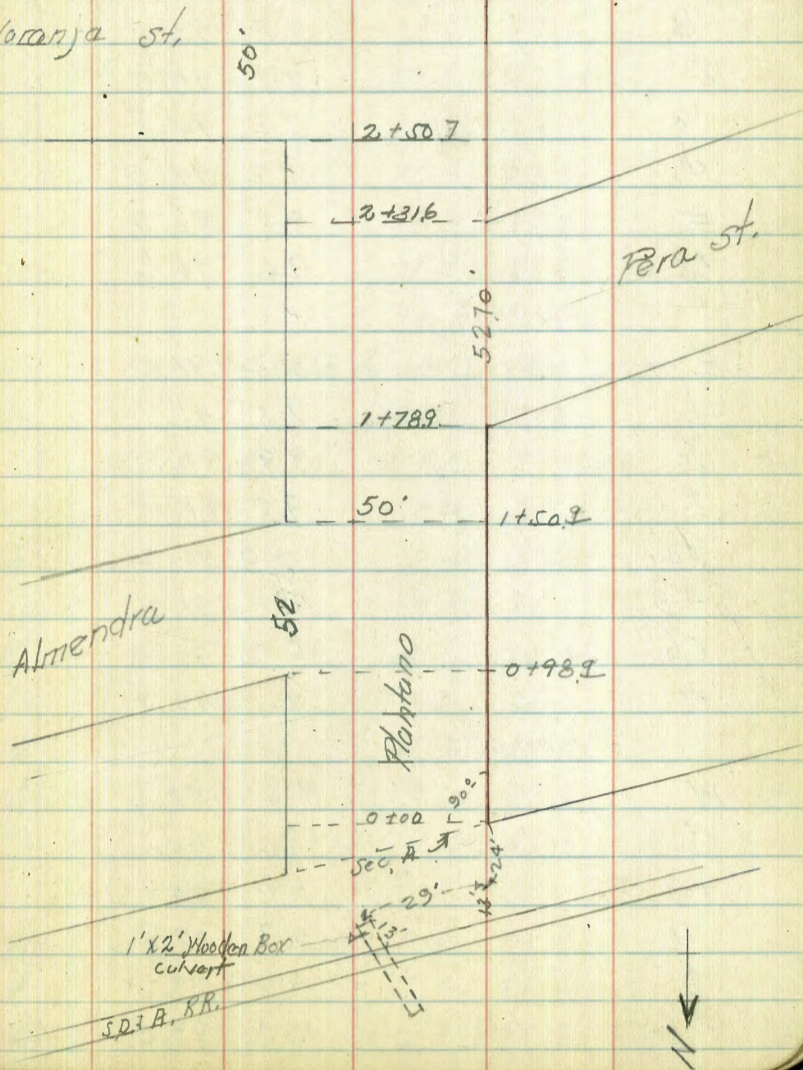 Naranja st.
50'
2+50.7
2+31.6
Pera St.
52.70'
1+78.9
50'
1+50.9
52
Almendra
Plantano
0+98.9
90°
0+00
Sec. A
29'
24'
13'
1'X2' Wooden Box
culvert
S.D.& A. RR.
N